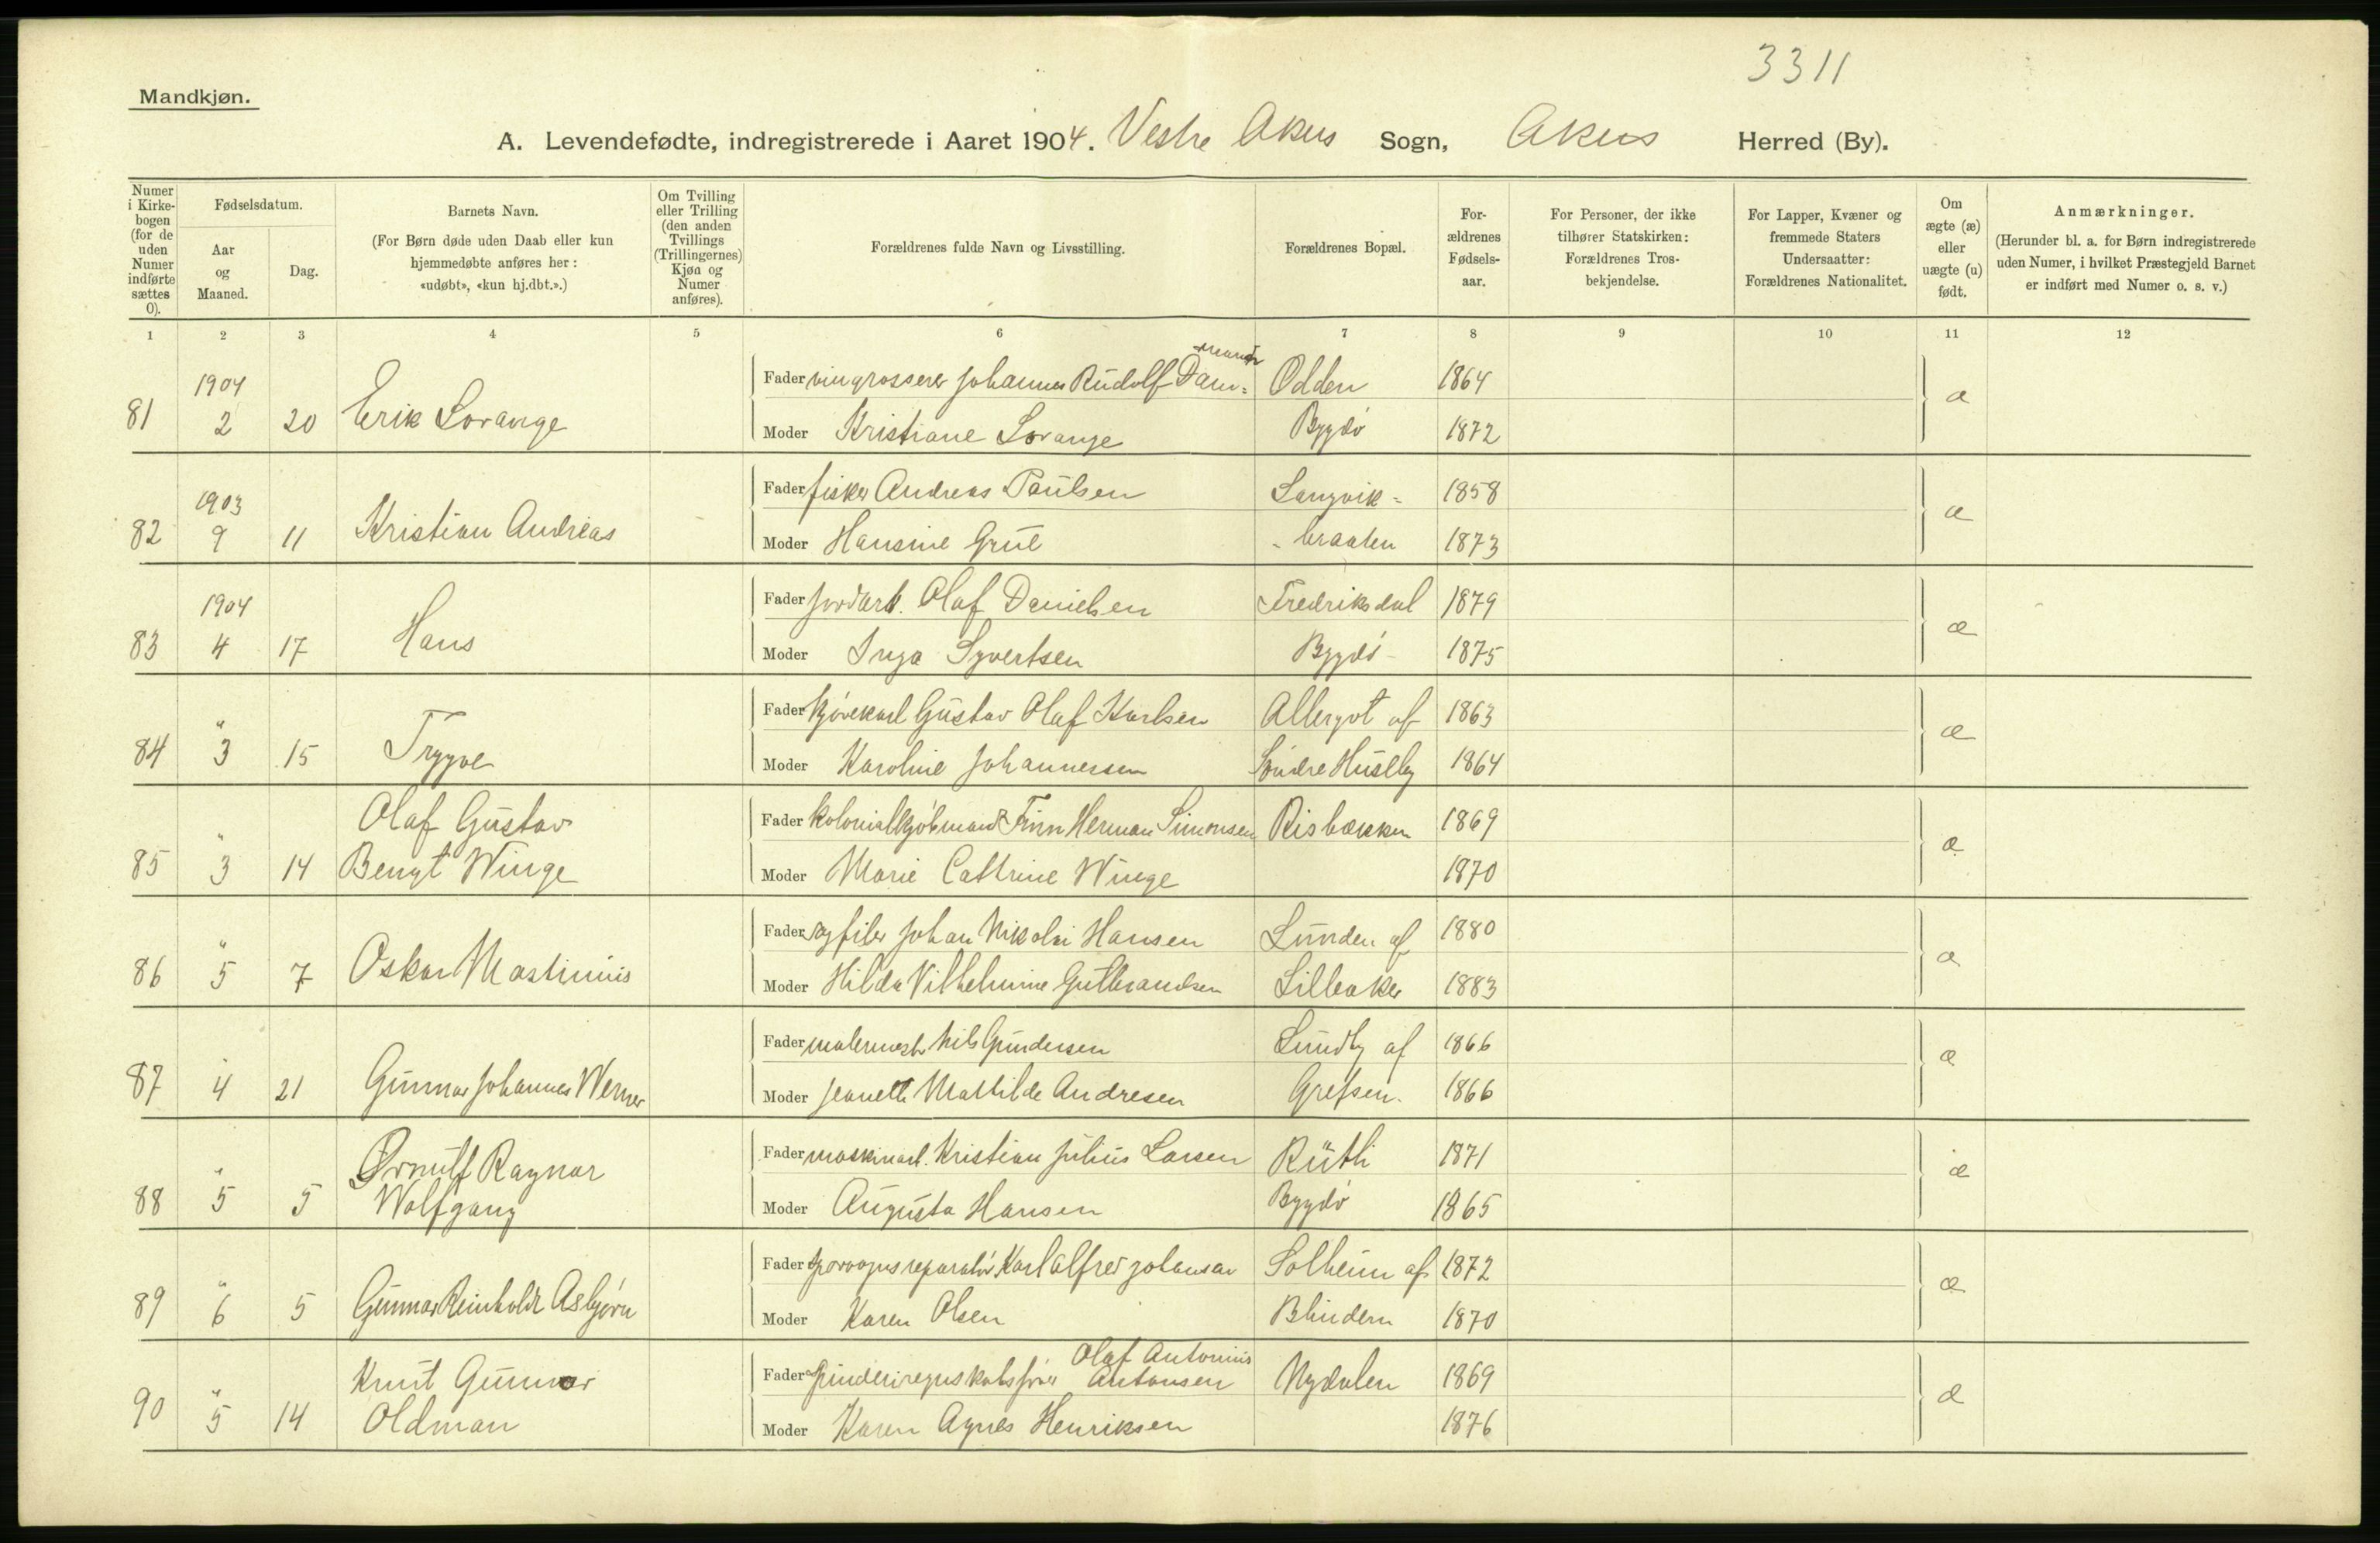 3311
Mandkjøn.
A. Levendefødte, indregistrerede i Aaret 1904. Vestre Aker Sogn, Aker Herred (By).
Numer i Kirkebogen (for de uden Numer indførte sættes 0).
Fødselsdatum.
Aar og Maaned.
Dag.
Barnets Navn.
(For Børn døde uden Daab eller kun hjemmedøbte anføres her: «udøbt», «kun hj.dbt.».)
Om Tvilling eller Trilling (den anden Tvillings (Trillingernes) Kjøn og Numer anføres).
Forældrenes fulde Navn og Livsstilling.
Forældrenes Bopæl.
Forældrenes Fødselsaar.
For Personer, der ikke tilhører Statskirken: Forældrenes Trosbekjendelse.
For Lapper, Kvæner og fremmede Staters Undersaatter: Forældrenes Nationalitet.
Om ægte (æ) eller uægte (u) født.
Anmærkninger.
(Herunder bl. a. for Børn indregistrerede uden Numer, i hvilket Præstegjeld Barnet er indført med Numer o. s. v.)
1 2 3 4 5 6 7 8 9 10 11 12
81 1904 2 20 Erik Lorange
Fader vingrosserer Johannes Rudolf Dam= Odden 1864 æ
Moder Kristiane Lorange Bygdø 1872
82 1903 9 11 Kristian Andreas
Fader fisker Andreas Paulsen Langvik= 1858 æ
Moder Hansine Grue - braaten 1873
83 1904 4 17 Hans
Fader jordarb. Olaf Danielsen Fredriksdal 1879 æ
Moder Inga Syvertsen Bygdø 1875
84 " 3 15 Trygve
Fader kjørekarl Gustav Olaf Karlsen Allergot af 1863 æ
Moder Karoline Johannersen Søndre Huseby 1864
85 " 3 14 Olaf Gustav
Bengt Winge
Fader kolonialkjøbmand Finn Herman Simonsen Risbakken 1869 æ
Moder Marie Cathrine Winge 1870
86 " 5 7 Oskar Martinius
Fader sagfiler Johan Nikolai Hansen Lunden af 1880 æ
Moder Hilda Vilhelmine Gulbrandsen Lilleaker 1883
87 " 4 21 Gunnar Johannes Werner
Fader malermester Nils Gundersen Lundby af 1866 æ
Moder Jeanette Mathilde Andresen Grefsen. 1866
88 " 5 5 Ørnulf Ragnar
Wolfgang
Fader maskinarb. Kristian Julius Larsen Rütli 1871 æ
Moder Augusta Hansen Bygdø 1865
89 " 6 5 Gunnar Reinholdt Asbjørn
Fader sporvognsreparatør Karl Alfred Johansen Solheim af 1872 æ
Moder Karen Olsen Blindern 1870
90 " 5 14 Knut Gunnar
Oldman
Olaf Antonius
Fader spinderiregnskabsfører Antonsen Nydalen 1869 æ
Moder Karen Agnes Henriksen 1876